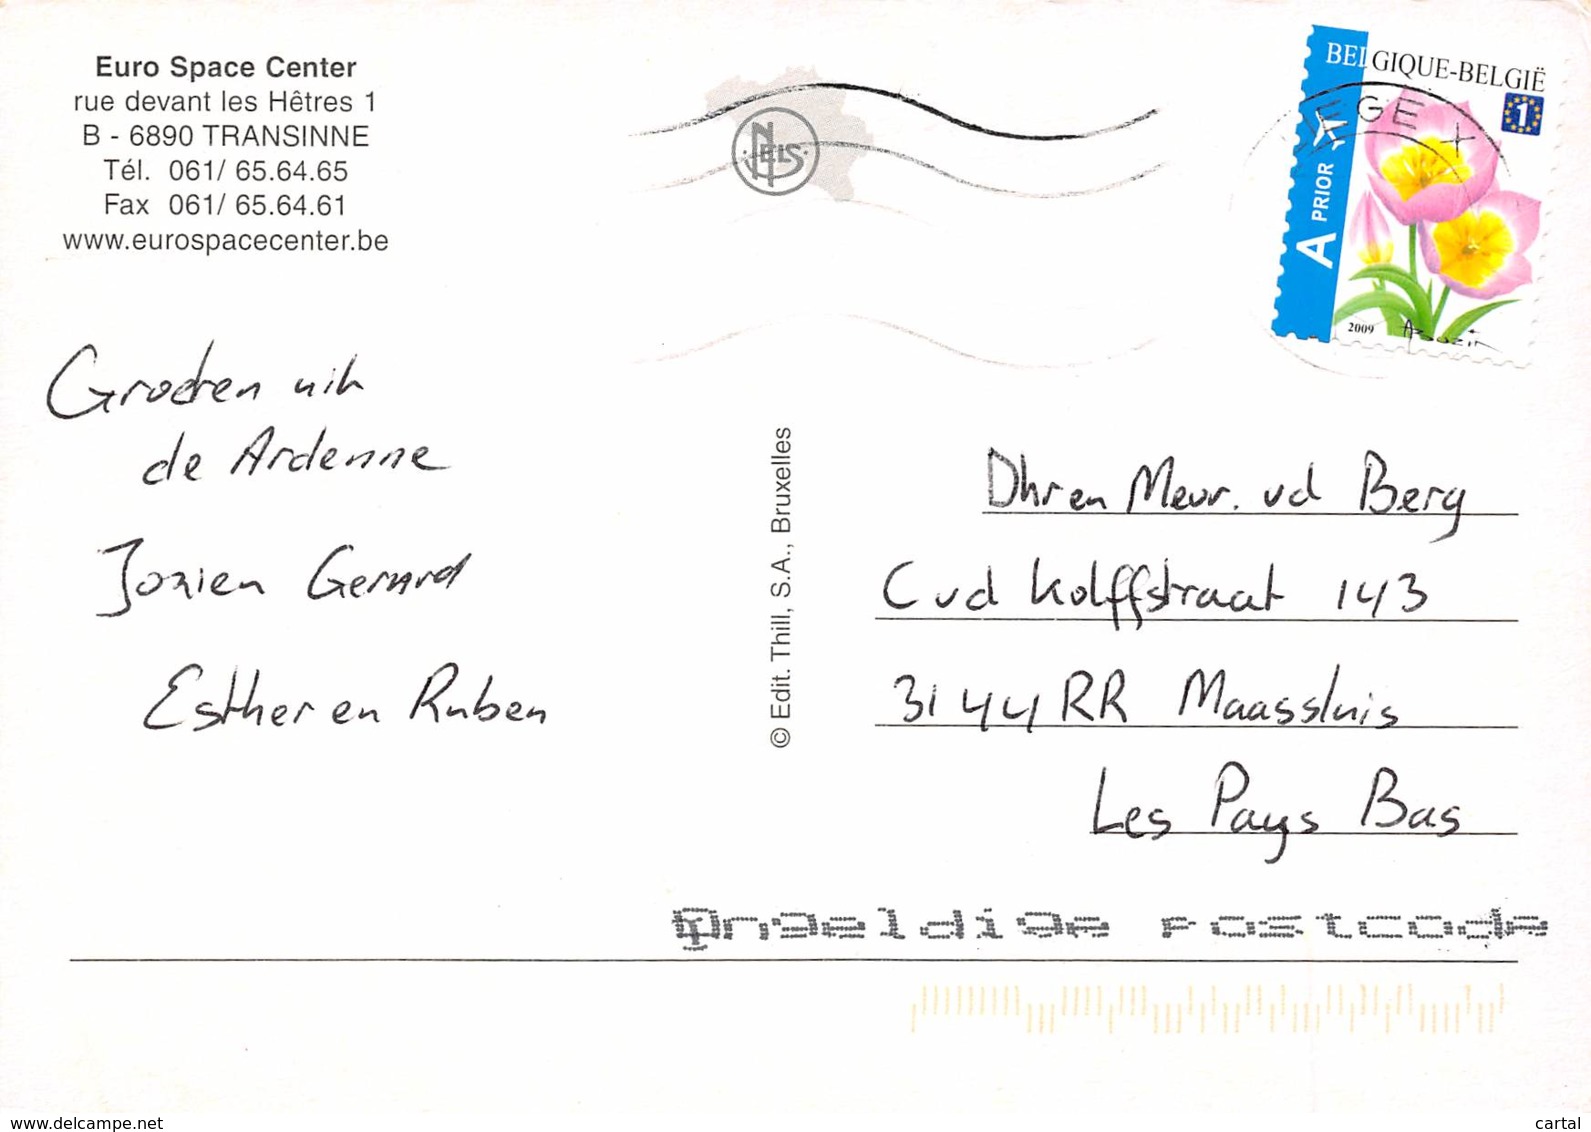 Euro Space Center
rue devant les Hêtres 1
B - 6890 TRANSINNE
Tél. 061/ 65.64.65
Fax 061/ 65.64.61
www.eurospacecenter.be
NELS
BELGIQUE-BELGIË
1
A PRIOR
2009
IEGE X
Groeten uit
de Ardenne
Jozien Gerard
Esther en Ruben
© Edit. Thill, S.A., Bruxelles
Dhr en Mevr. vd Berg
C vd Kolffstraat 143
3144RR Maassluis
Les Pays Bas
Ongeldige postcode
www.delcampe.net
cartal